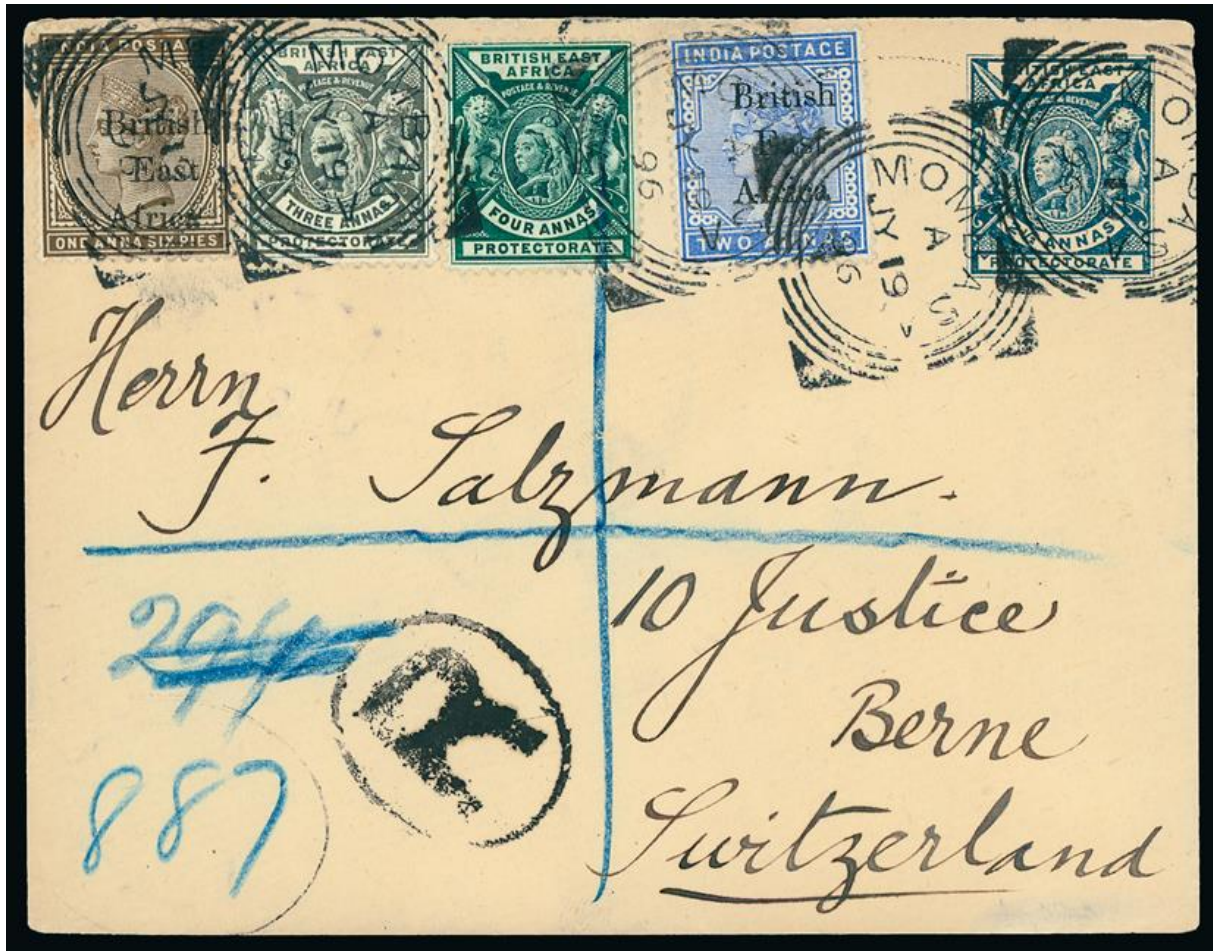 INDIA POSTAGE
British
East
Africa
ONE ANNA SIX PIES
BRITISH EAST
AFRICA
POSTAGE & REVENUE
THREE ANNAS
PROTECTORATE
BRITISH EAST
AFRICA
POSTAGE & REVENUE
FOUR ANNAS
PROTECTORATE
INDIA POSTAGE
British
East
Africa
TWO ANNAS
BRITISH EAST
AFRICA
POSTAGE & REVENUE
ANNAS
PROTECTORATE
MOMBASA
A
JY 19
96
MOMBASA
A
Herrn
F. Salzmann.
10 Justice
Berne
Switzerland
R
887